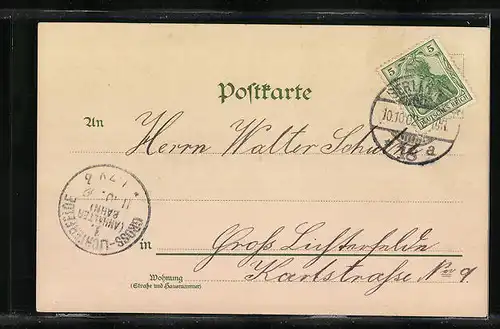 5 5
DEUTSCHES REICH
BERLIN
10.10.0
18 a
Postkarte
An
Herrn Walter Schulze
GROSS-LICHTERFELDE
(ANHALTER
BAHN)
1.
in
Groß Lichterfelde
Wohnung
(Straße und Hausnummer)
Karlstrasse No 9